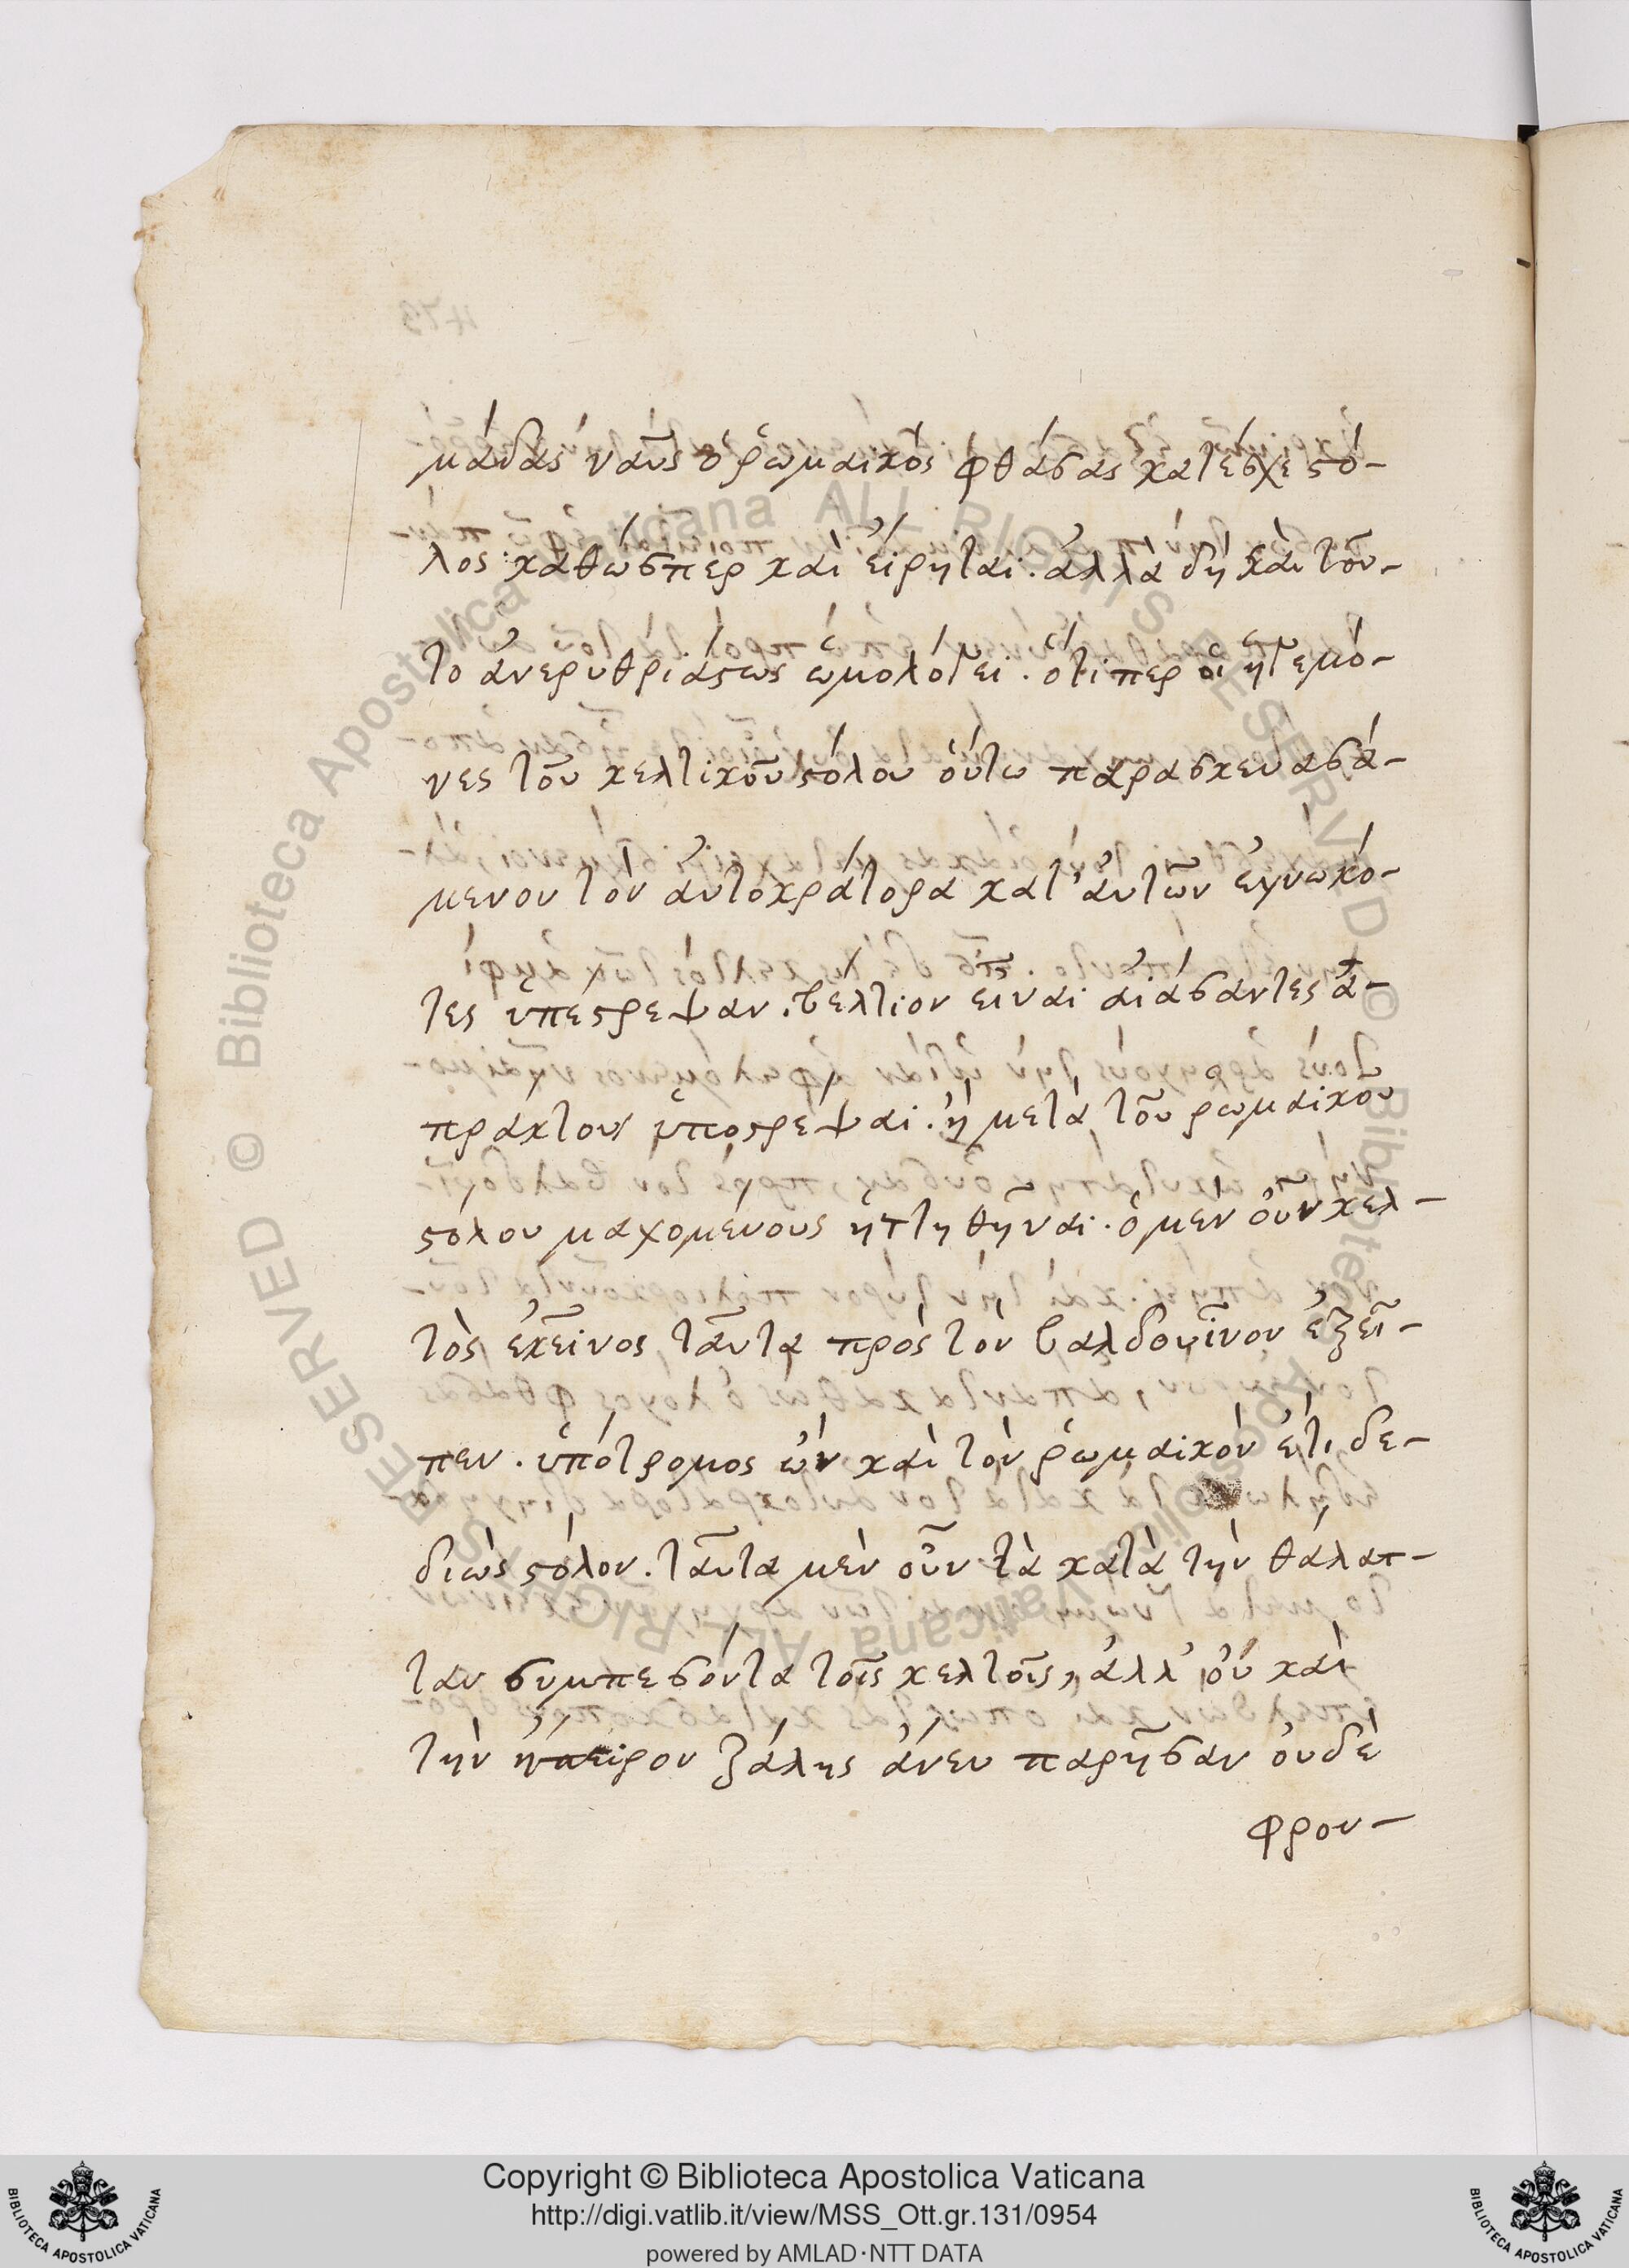 μάδας ναῦς ὁ ῥωμαικὸς φθάσας κατέσχε στό-
λος· καθώσπερ καὶ εἴρηται. ἀλλὰ δὴ καὶ τοῦ-
το ἀνερυθριάστως ὡμολόγει. ὅτι περ οἱ ἡγεμό-
νες τοῦ κελτικοῦ στόλου οὕτω παρασκευασά-
μενον τὸν αὐτοκράτορα κατ' αὐτῶν ἐγνωκό-
τες ὑπέστρεψαν. βέλτιον εἶναι αἰάσαντες ἀ-
πράκτους ὑποστρέψαι. ἢ μετὰ τοῦ ρωμαικοῦ
στόλου μαχομένους ἡττηθῆναι. ὁ μὲν οὖν κελ-
τὸς ἐκεῖνος ταῦτα πρὸς τὸν βαλδουῖνον ἐξεῖ-
πεν. ὑπότρομος ὢν καὶ τὸν ῥωμαικὸν ἔτι δε-
διὼς στόλον. ταῦτα μὲν οὖν τὰ κατὰ τὴν θάλατ-
ταν συμπεσόντα τοῖς κελτοῖς, ἀλλ' οὐ καὶ
τὴν ἤπειρον ζάλης ἄνευ παρῆσαν οὐδὲ
φρου-
Copyright © Biblioteca Apostolica Vaticana
http://digi.vatlib.it/view/MSS_Ott.gr.131/0954
powered by AMLAD·NTT DATA